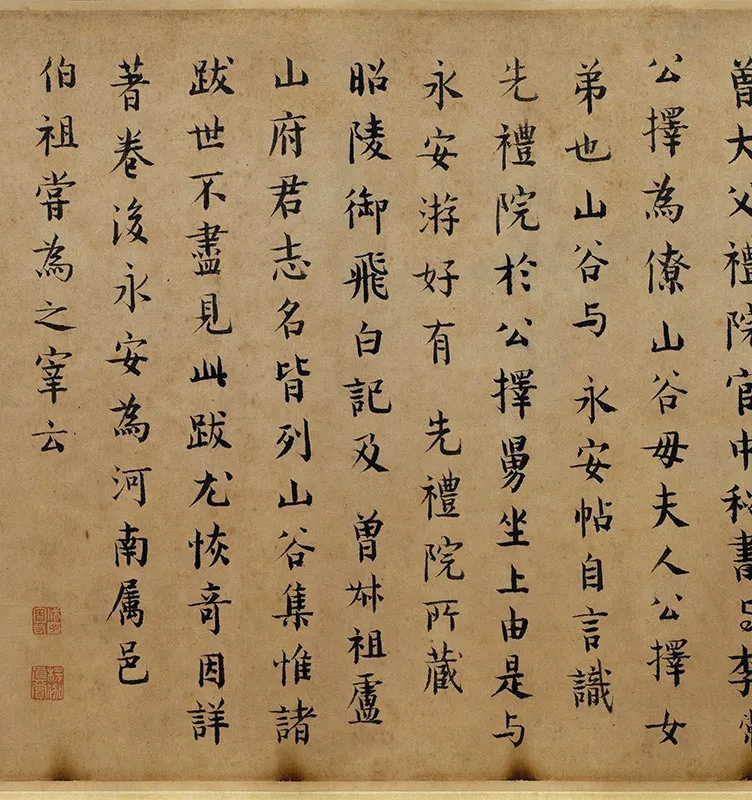 曾大父禮院官中秘書与李常
公擇為僚山谷母夫人公擇女
弟也山谷与 永安帖自言識
先禮院於公擇舅坐上由是与
永安游好有 先禮院所藏
昭陵御飛白記及 曾叔祖盧
山府君志名皆列山谷集惟諸
跋世不盡見此跋尤恢奇因詳
著卷後永安為河南属邑
伯祖嘗為之宰云